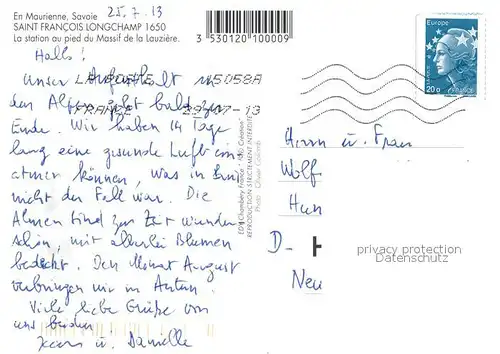 En Maurienne, Savoie 25.7.13
SAINT FRANÇOIS LONGCHAMP 1650
La station au pied du Massif de la Lauzière.
3 530120 100009
Hallo!
Unser Aufenthalt in
den Alpen geht bald zu
Ende. Wir haben 14 Tage
lang eine gesunde Luft ein
atmen können, was in
nicht der Fall war. Die
Almen sind zur Zeit wunder
schön, mit allerlei Blumen
bedeckt. Den Monat August
verbringen wir in
Viele liebe Grüße von
uns beiden
u. Danielle
45058A
FRANCE 29-07-13
EDY Chambéry France
REPRODUCTION STRICTEMENT INTERDITE
Photo : Olivier Colomb
Europe
20g
FRANCE
Herrn u. Frau
Wolf
Han
D-
Neu
privacy protection
Datenschutz